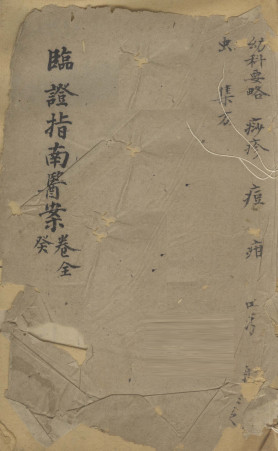 幼科要略 痧疹 痘 疳
虫 集方
臨證指南醫案
卷全
癸